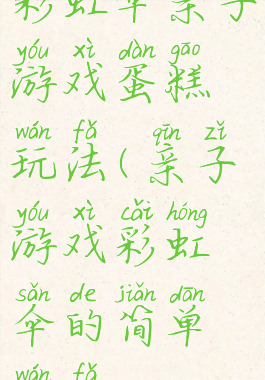 彩虹伞亲子
yóu xì dàn gāo
游戏蛋糕
wán fǎ qīn zǐ
玩法(亲子
yóu xì cǎi hóng
游戏彩虹
sǎn de jiǎn dān
伞的简单
wán fǎ